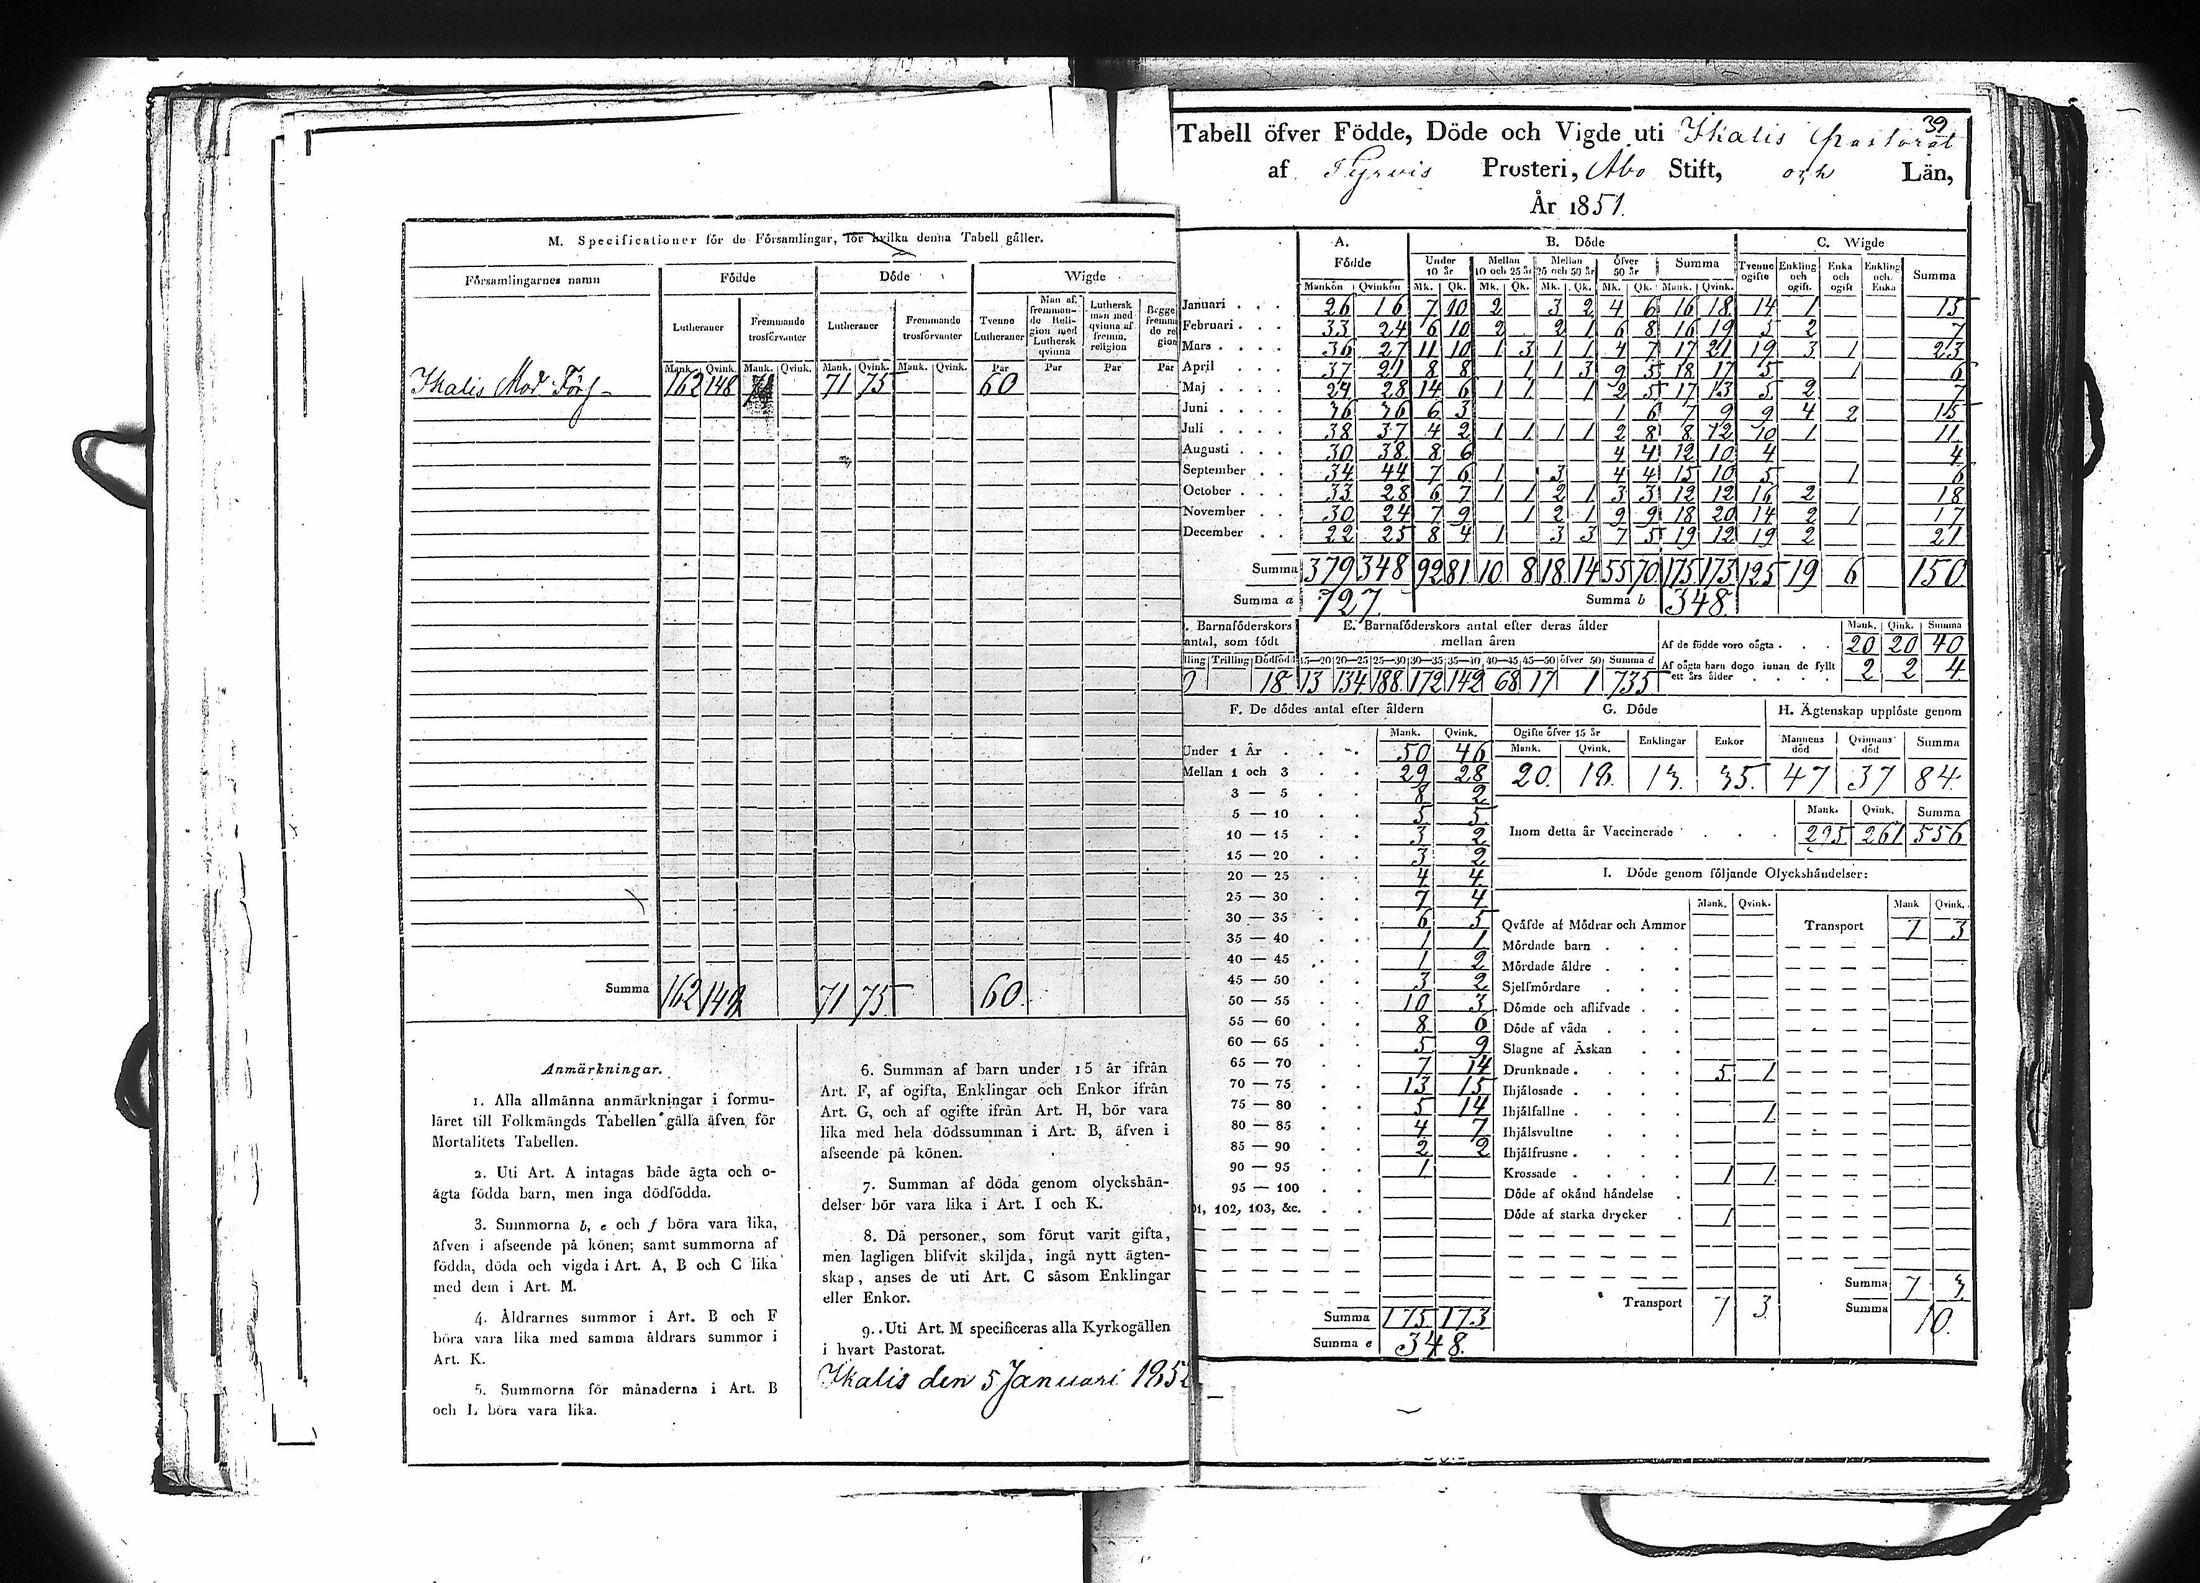 M. Specificationer för de Församlingar, för hvilka denna Tabell gäller.
Församlingarnes namn Födde Döde Wigde
Lutheraner Fremmande trosförvanter Lutheraner Fremmande trosförvanter Tvenne Lutheraner Man af fremmande Religion med Luthersk qvinna Luthersk man med qvinna af fremm. religion
Mank. Qvink. Mank. Qvink. Mank. Qvink. Mank. Qvink. Par Par Par Par
Ikalis Mod. Förs 162 148 71 75 60
Summa 162 148 71 75 60
Anmärkningar.
1. Alla allmänna anmärkningar i formu-
läret till Folkmängds Tabellen gälla äfven för
Mortalitets Tabellen.
2. Uti Art. A intagas både ägta och o-
ägta födda barn, men inga dödfödda.
3. Summorna b, e och f böra vara lika,
äfven i afseende på könen; samt summorna af
födda, döda och vigda i Art. A, B och C lika
med dem i Art. M.
4. Åldrarnes summor i Art. B och F
böra vara lika med samma åldrars summor i
Art. K.
5. Summorna för månaderna i Art. B
och L böra vara lika.
6. Summan af barn under 15 år ifrån
Art. F, af ogifta, Enklingar och Enkor ifrån
Art. G, och af ogifte ifrån Art. H, bör vara
lika med hela dödssumman i Art. B, äfven i
afseende på könen.
7. Summan af döda genom olyckshän-
delser bör vara lika i Art. I och K.
8. Då personer, som förut varit gifta,
men lagligen blifvit skiljda, ingå nytt ägten-
skap, anses de uti Art. C såsom Enklingar
eller Enkor.
9. Uti Art. M specificeras alla Kyrkogällen
i hvart Pastorat.
Ikalis den 5 Januari 185
39
Tabell öfver Födde, Döde och Vigde uti Ikalis Pastorat
af Tyrvis Prosteri, Åbo Stift, och Län,
År 1851.
A. Födde B. Döde C. Wigde
Under 10 år Mellan 10 och 25 år Mellan 25 och 50 år Öfver 50 år Summa Tvenne ogifte Enkling och ogift. Enka och ogift Enkling och Enka Summa
Mankön Qvinkön Mk. Qk. Mk. Qk. Mk. Qk. Mk. Qk. Mank. Qvink.
Januari 26 16 7 10 2 3 2 4 6 16 18 14 1 15
Februari 33 24 6 10 2 2 1 6 8 16 19 5 2 7
Mars 36 27 11 10 1 3 1 1 4 7 17 21 19 3 1 23
April 37 21 8 8 1 1 3 9 5 18 17 5 1 6
Maj 24 28 14 6 1 1 1 2 5 17 13 5 2 7
Juni 36 36 6 3 1 6 7 9 9 4 2 15
Juli 38 37 4 2 1 1 1 1 2 8 8 12 10 1 11
Augusti 30 38 8 6 4 4 12 10 4 4
September 34 44 7 6 1 3 4 4 15 10 5 1 6
October 33 28 6 7 1 1 2 1 3 3 12 12 16 2 18
November 30 24 7 9 1 2 1 9 9 18 20 14 2 1 17
December 22 25 8 4 1 3 3 7 5 19 12 19 2 21
Summa 379 348 92 81 10 8 18 14 55 70 175 173 125 19 6 150
Summa a 727 Summa b 348
. Barnaföderskors antal, som födt E. Barnaföderskors antal efter deras ålder mellan åren
Mank. Qink. Summa
Af de födde voro oägta 20 20 40
Af oägta barn dogo innan de fyllt ett års ålder 2 2 4
lling Trilling Dödfödd 15—20 20—25 25—30 30—35 35—40 40—45 45—50 öfver 50 Summa d
0 18 13 134 188 172 142 68 17 1 735
F. De dödes antal efter åldern
Mank. Qvink.
Under 1 År 50 46
Mellan 1 och 3 29 28
3 — 5 8 2
5 — 10 5 5
10 — 15 3 2
15 — 20 3 2
20 — 25 4 4
25 — 30 7 4
30 — 35 6 5
35 — 40 1 1
40 — 45 1 2
45 — 50 3 2
50 — 55 10 3
55 — 60 8 6
60 — 65 5 9
65 — 70 7 14
70 — 75 13 15
75 — 80 5 14
80 — 85 4 7
85 — 90 2 2
90 — 95 1
95 — 100
01, 102, 103, &c.
Summa 175 173
Summa e 348.
G. Döde H. Ägtenskap upplöste genom
Ogifte öfver 15 år Enklingar Enkor Mannens död Qvinnans död Summa
Mank. Qvink.
20. 18. 13. 35. 47 37 84.
Mank. Qvink. Summa
Inom detta år Vaccinerade 295 261 556
I. Döde genom följande Olyckshändelser:
Mank. Qvink. Mank Qvink.
Qväfde af Mödrar och Ammor Transport 7 3
Mördade barn
Mördade äldre
Sjelfmördare
Dömde och aflifvade
Döde af våda
Slagne af Åskan
Drunknade 5 1
Ihjälosade
Ihjälfallne 1
Ihjälsvultne
Ihjälfrusne
Krossade 1 1
Döde af okänd händelse
Döde af starka drycker 1
Summa 7 3
Transport 7 3 Summa 10.